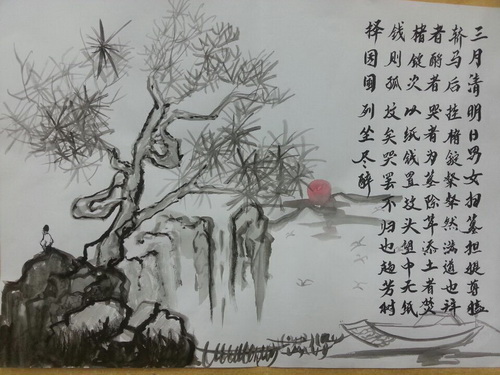 三月清明日男女扫墓担提尊榼
轿马后挂楮锭粲粲然满道也拜
者酹者哭者为墓除草添土者焚
楮锭次以纸钱置坟头望中无纸
钱则孤坟矣哭罢不归也趋芳树
择园圃列坐尽醉